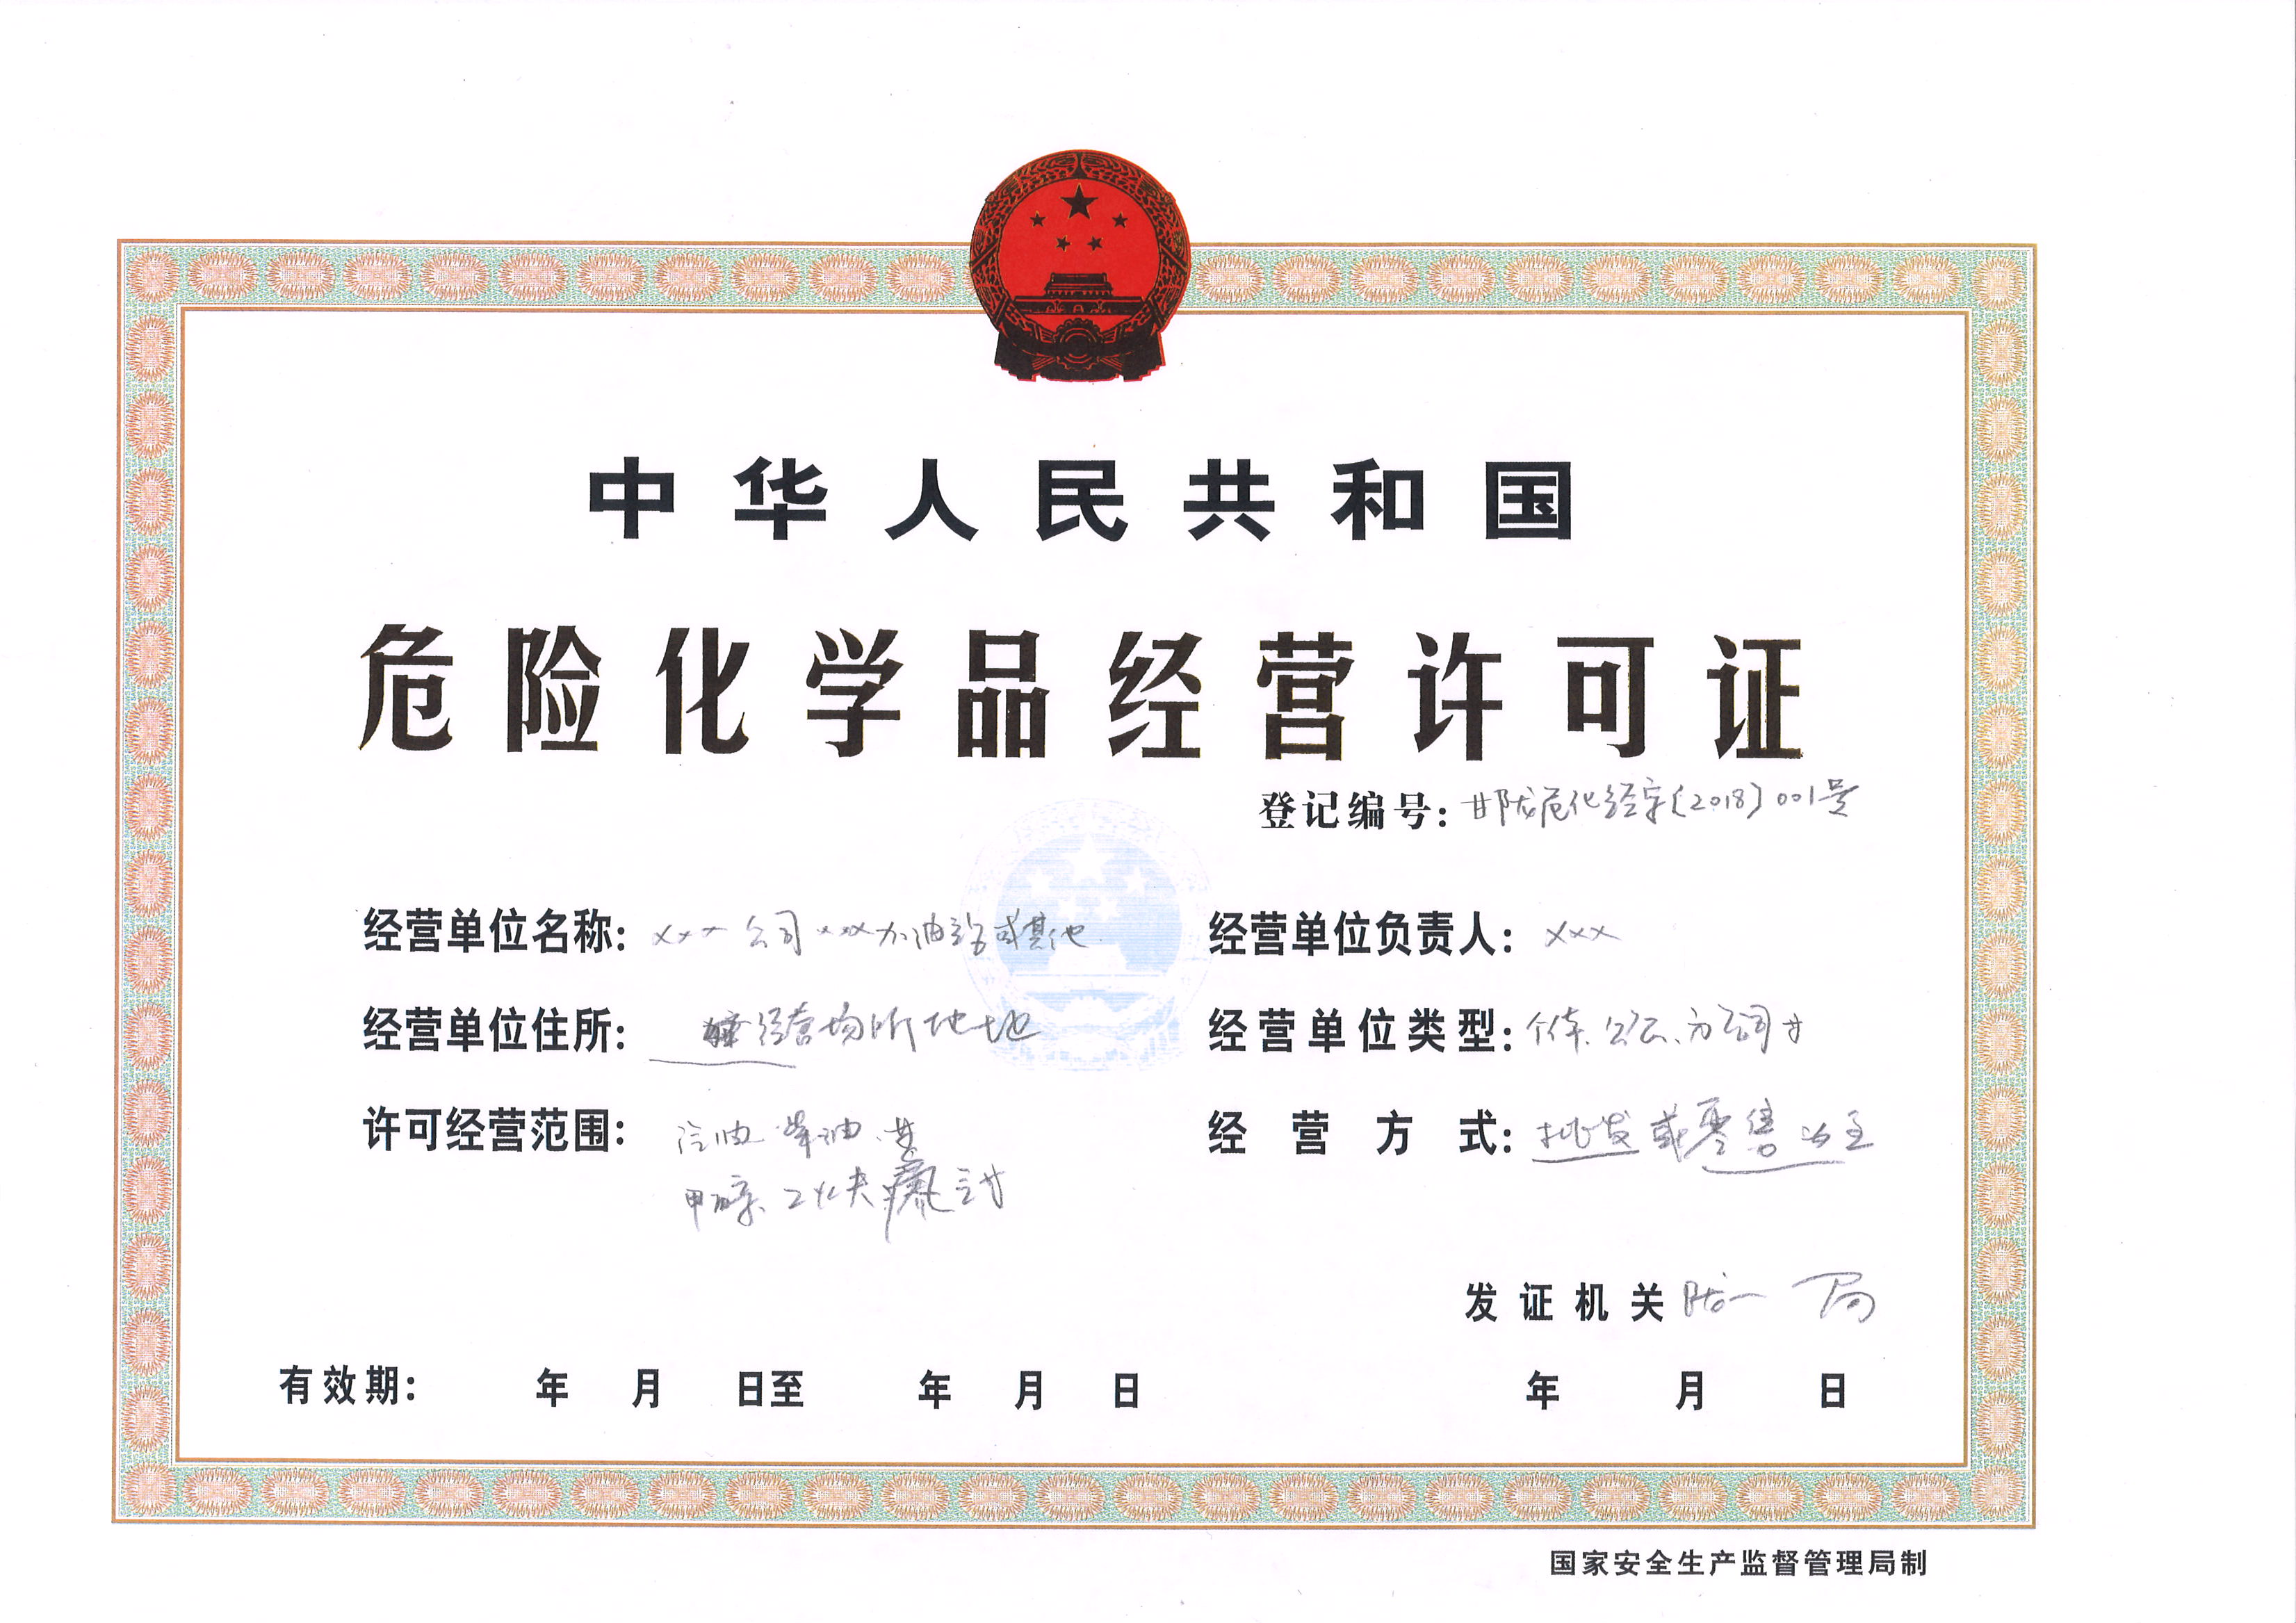 中华人民共和国
危险化学品经营许可证
登记编号：甘陇危化经字〔2018〕001号
经营单位名称：xxx公司xxx加油站或其他 经营单位负责人：xxx
经营单位住所：经营场所地址 经营单位类型：个体、公司、分公司
许可经营范围：汽油、柴油、 经营方式：批发或零售为主
甲醇、工业
发证机关 局
有效期： 年 月 日至 年 月 日 年 月 日
国家安全生产监督管理局制